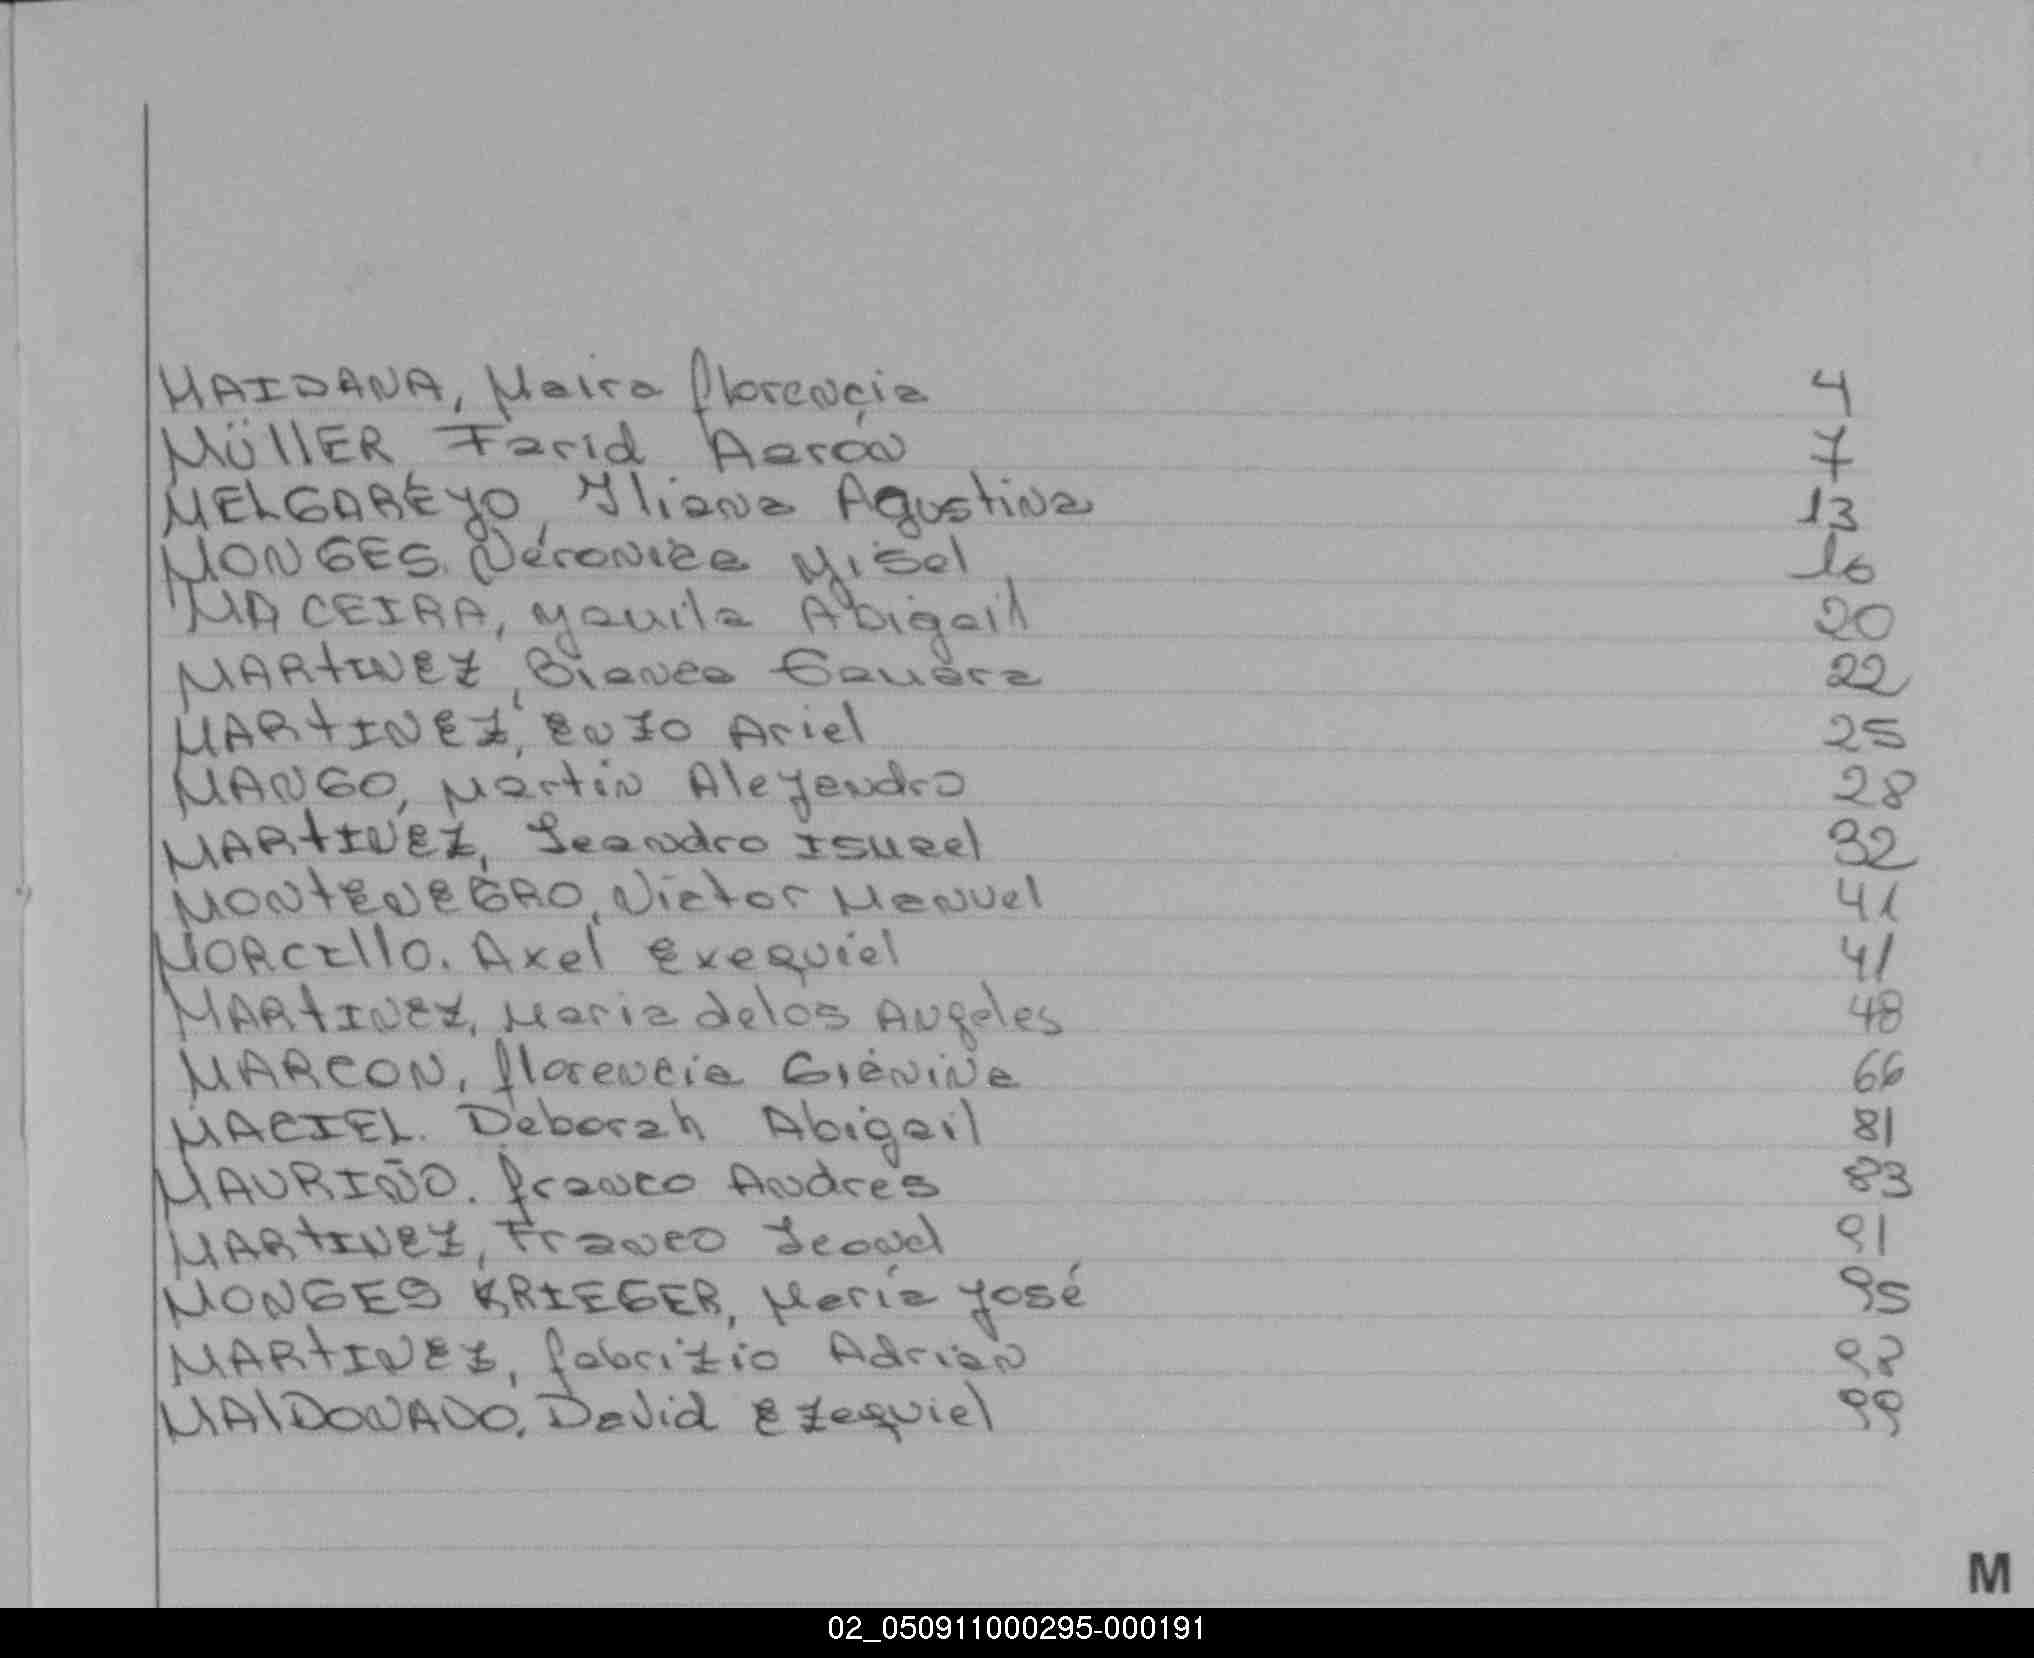 MAIDANA, Maira florencia 4
MÜllER Farid Aarón 7
MELGAREYO, Iliana Agustina 13
MONGES. Veronica Yisel 16
MACEIRA, Yamila Abigail 20
MARtINEZ, Bianca 22
MARtINEZ, ENZO Ariel 25
MANGO, Martin Aleyandro 28
MARtINEZ, Leandro Ismael 32
MONtENEGRO, Victor Manuel 41
MORCIllO. Axel Exequiel 41
MARtINEZ, Maria delos Angeles 48
MARCON, florencia Gianina 66
MACIEL. Deborah Abigail 81
MAURIÑO. franco Andres 83
MARtINEZ, Franco Leonel 91
MONGES KRIEGER, María José 95
MARtINEZ, fabrizio Adrian
MAlDONADO, David Ezequiel 99
M
02_050911000295-000191